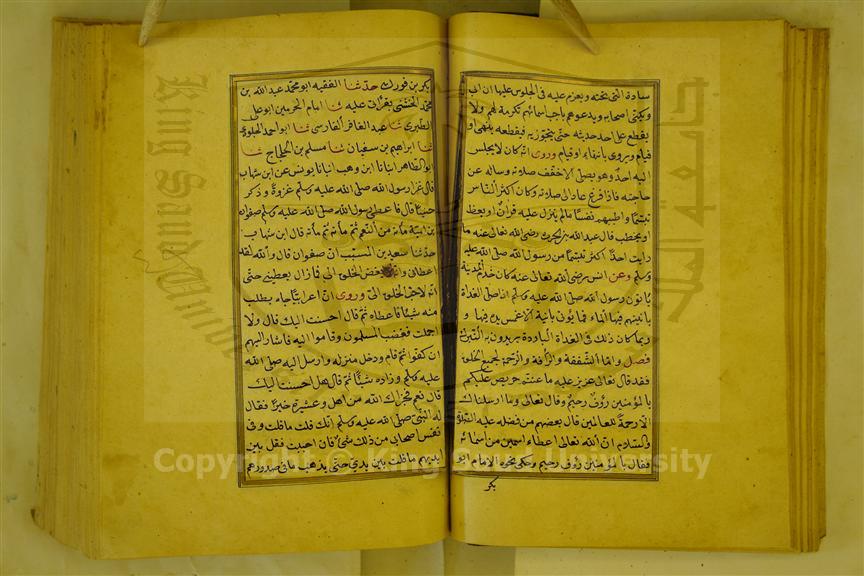 سادة التى تحته ويعزم عليه فى الجلوس عليها ان ابى
ويكنى اصحابه ويدعوهم باحب اسمائهم تكرمة لهم ولا
يقطع على احد حديثه حتى يتجوز فيقطعه بنهى او
قيام ويروى بانتهاء او قيام وروى انه كان لا يجلس
اليه احد وهو يصلى الا خفف صلاته وساله عن
حاجته فاذا فرغ عاد الى صلاته وكان اكثر الناس
تبسما واطيبهم نفسا مالم ينزل عليه قرآن او يعظ
او يخطب قال عبد الله بن الحرث رضى الله تعالى عنه ما
رايت احدا اكثر تبسما من رسول الله صلى الله عليه
وسلم وعن انس رضى الله تعالى عنه كان خدم المدينة
ياتون رسول الله صلى الله عليه وسلم اذا صلى الغداة
بآنيتهم فيها الماء فما يؤتى بآنية الا غمس يده فيها و
ربما كان ذلك فى الغداة الباردة يريدون به التبرك
فصل واما الشفقة والرأفة والرحمة لجميع الخلق
فقد قال تعالى عزيز عليه ما عنتم حريص عليكم
بالمؤمنين رؤف رحيم وقال تعالى وما ارسلناك
الا رحمة للعالمين قال بعضهم من فضله عليه الصلوة
والسلام ان الله تعالى اعطاه اسمين من اسمائه
فقال بالمؤمنين رؤف رحيم وحكى نحوه الامام ابو
بكر
بكر بن فورك حدثنا الفقيه ابو محمد عبد الله بن
محمد الخشنى بقرائتى عليه ثنا امام الحرمين ابو على
الطبرى ثنا عبد الغافر الفارسى ثنا ابو احمد الجلودى
ثنا ابراهيم بن سفيان ثنا مسلم بن الحجاج ثنا
ابو الطاهر انبانا ابن وهب انبانا يونس عن ابن شهاب
قال غزا رسول الله صلى الله عليه وسلم غزوة وذكر
حنينا قال فاعطى رسول الله صلى الله عليه وسلم صفوان
بن امية مائة من النعم ثم مائة ثم مائة قال ابن شهاب
حدثنا سعيد بن المسيب ان صفوان قال والله لقد
اعطانى وانه لابغض الخلق الى فما زال يعطينى حتى
انه لاحب الخلق الى وروى ان اعرابيا جاء يطلب
منه شيئا فاعطاه ثم قال احسنت اليك قال لا ولا
اجملت فغضب المسلمون وقاموا اليه فاشار اليهم
ان كفوا ثم قام ودخل منزله وارسل اليه صلى الله
عليه وسلم وزاده شيئا ثم قال هل احسنت اليك
قال نعم فجزاك الله من اهل وعشيرة خيرا فقال
له النبى صلى الله عليه وسلم انك قلت ما قلت وفى
نفس اصحابى من ذلك شئ فان احببت فقل بين
ايديهم ما قلت بين يدى حتى يذهب ما فى صدورهم
جامعة الملك
King Saud University
Copyright © King Saud University